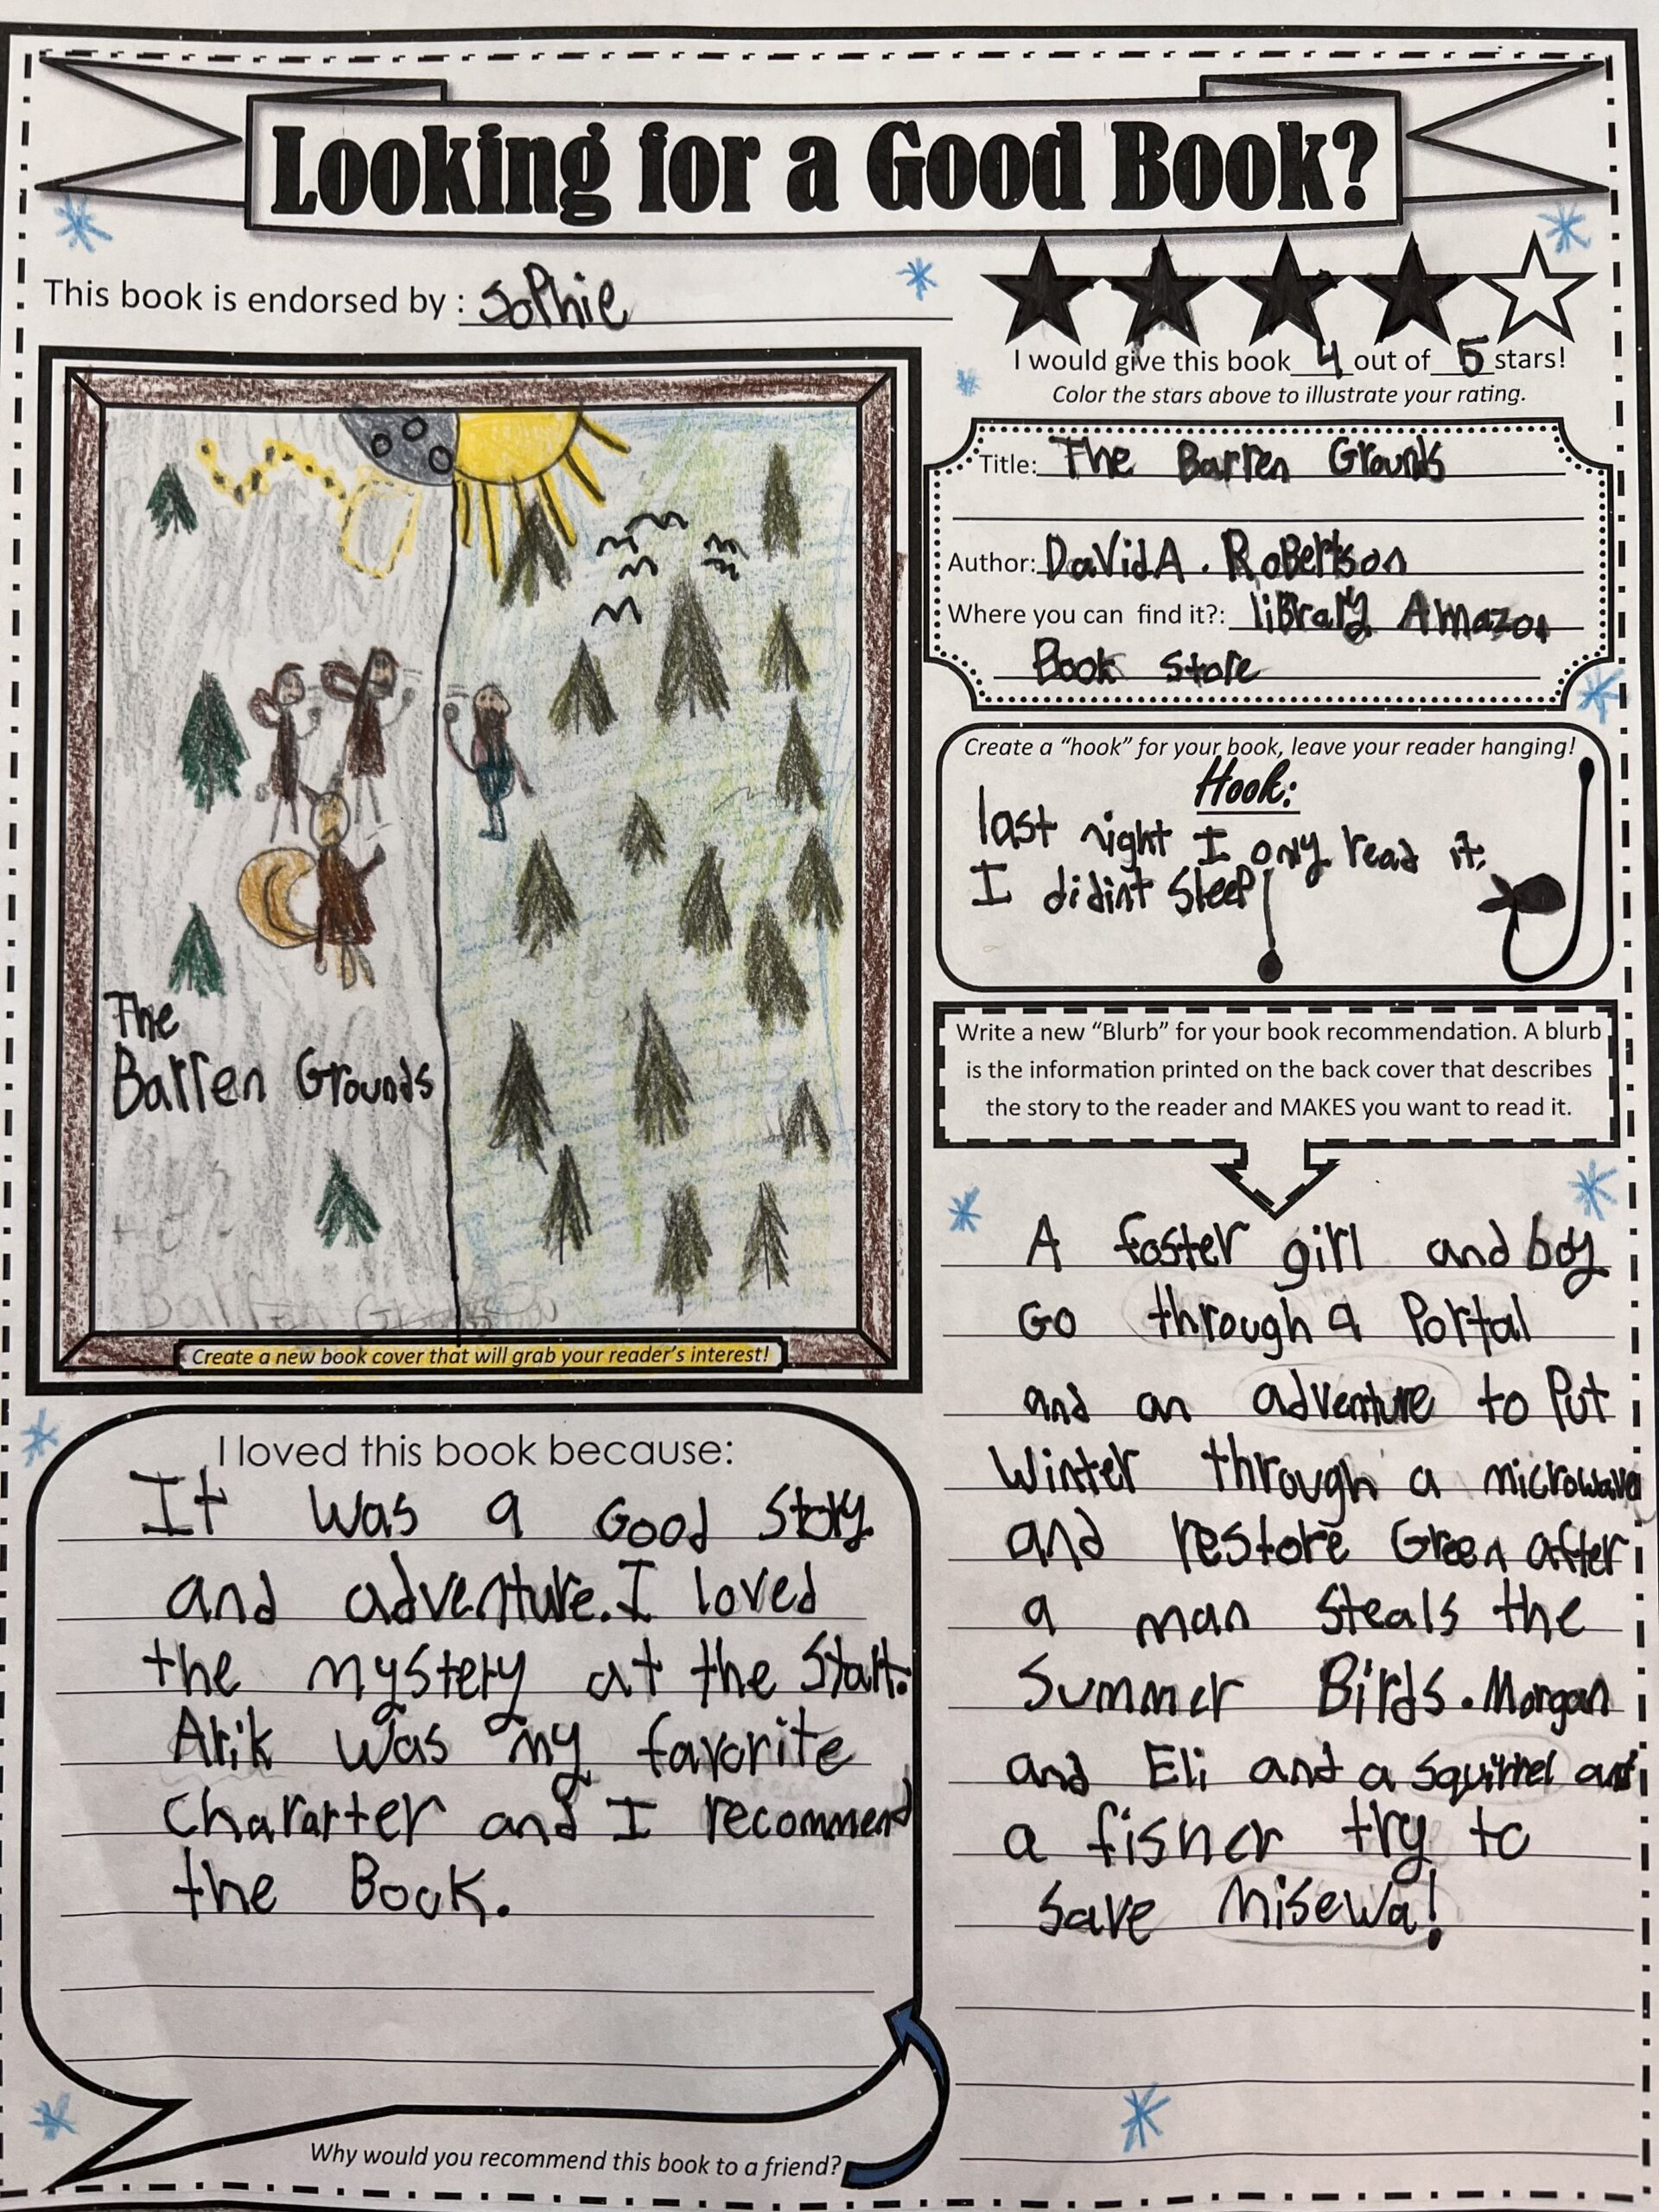 Looking for a Good Book?
This book is endorsed by : Sophie
I would give this book 4 out of 5 stars!
Color the stars above to illustrate your rating.
Title: The Barren Grounds
Author: David A. Robertson
Where you can find it?: library Amazon
Book store
Create a “hook” for your book, leave your reader hanging!
Hook:
last night I only read it.
I didint sleep!
The
Barren Grounds
Barren Grounds
Create a new book cover that will grab your reader’s interest!
Write a new “Blurb” for your book recommendation. A blurb
is the information printed on the back cover that describes
the story to the reader and MAKES you want to read it.
A foster girl and boy
Go through a Portal
and an adventure to Put
Winter through a microwave
and restore Green after
a man steals the
Summer Birds. Morgan
and Eli and a squirrel and
a fisher try to
save Misewa!
I loved this book because:
It was a Good Story
and adventure. I loved
the mystery at the Start.
Arik was my favorite
Chararter and I recommend
the Book.
Why would you recommend this book to a friend?